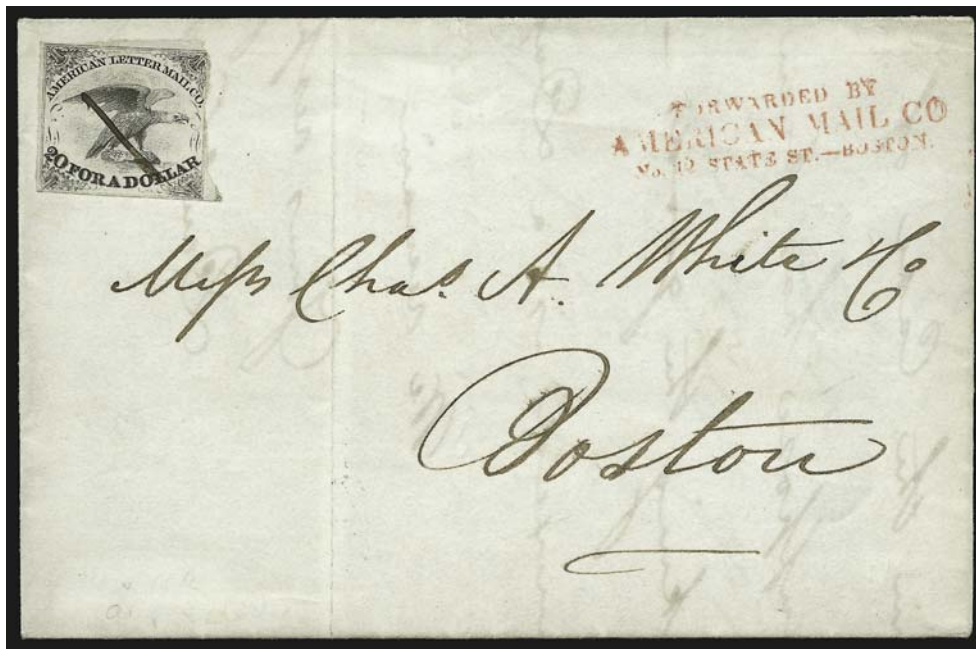 AMERICAN LETTER MAIL CO.
20 FOR A DOLLAR
FORWARDED BY
AMERICAN MAIL CO
No. 12 STATE ST.—BOSTON.
Messrs Chas. A. White & Co
Boston